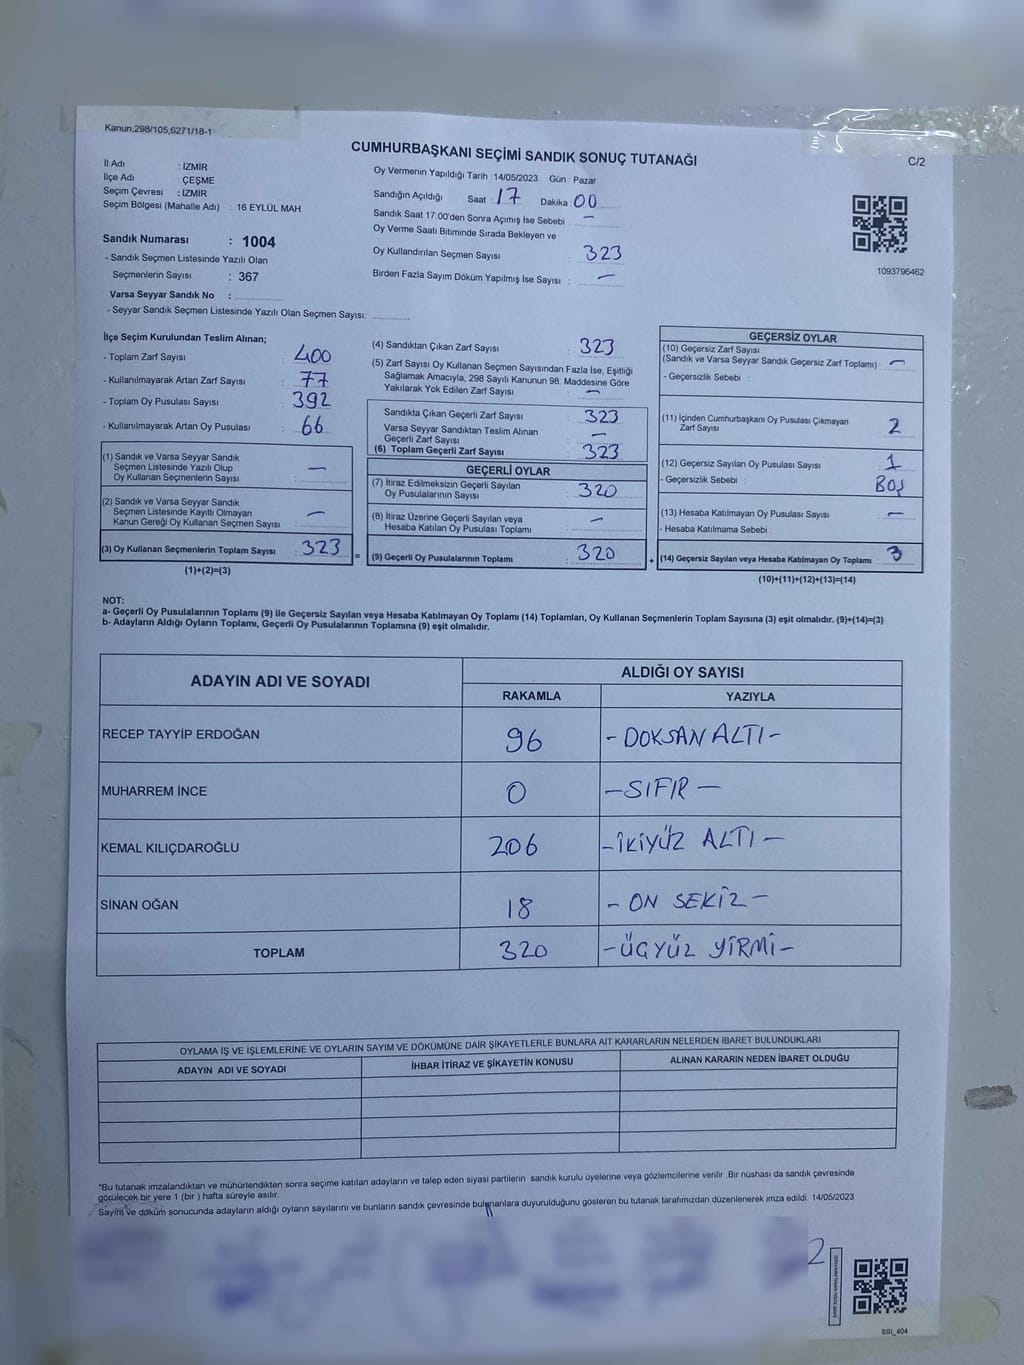 Kanun,298/105,6271/18-1
CUMHURBAŞKANI SEÇİMİ SANDIK SONUÇ TUTANAĞI
C/2
İl Adı : İZMİR
İlçe Adı : ÇEŞME
Seçim Çevresi : İZMİR
Seçim Bölgesi (Mahalle Adı) : 16 EYLÜL MAH.
Sandık Numarası : 1004
- Sandık Seçmen Listesinde Yazılı Olan
Seçmenlerin Sayısı : 367
Varsa Seyyar Sandık No :
- Seyyar Sandık Seçmen Listesinde Yazılı Olan Seçmen Sayısı:
Oy Vermenin Yapıldığı Tarih : 14/05/2023 Gün : Pazar
Sandığın Açıldığı Saat : 17 Dakika : 00
Sandık Saat 17.00'den Sonra Açımış İse Sebebi : —
Oy Verme Saati Bitiminde Sırada Bekleyen ve
Oy Kullandırılan Seçmen Sayısı : 323
Birden Fazla Sayım Döküm Yapılmış İse Sayısı : —
1093796462
İlçe Seçim Kurulundan Teslim Alınan;
- Toplam Zarf Sayısı : 400
- Kullanılmayarak Artan Zarf Sayısı : 77
- Toplam Oy Pusulası Sayısı : 392
- Kullanılmayarak Artan Oy Pusulası : 66
(1) Sandık ve Varsa Seyyar Sandık
Seçmen Listesinde Yazılı Olup
Oy Kullanan Seçmenlerin Sayısı : —
(2) Sandık ve Varsa Seyyar Sandık
Seçmen Listesinde Kayıtlı Olmayan
Kanun Gereği Oy Kullanan Seçmen Sayısı : —
(3) Oy Kullanan Seçmenlerin Toplam Sayısı : 323 =
(1)+(2)=(3)
(4) Sandıktan Çıkan Zarf Sayısı : 323
(5) Zarf Sayısı Oy Kullanan Seçmen Sayısından Fazla İse, Eşitliği
Sağlamak Amacıyla, 298 Sayılı Kanunun 98. Maddesine Göre
Yakılarak Yok Edilen Zarf Sayısı : —
Sandıkta Çıkan Geçerli Zarf Sayısı : 323
Varsa Seyyar Sandıktan Teslim Alınan
Geçerli Zarf Sayısı : —
(6) Toplam Geçerli Zarf Sayısı : 323
GEÇERLİ OYLAR
(7) İtiraz Edilmeksizin Geçerli Sayılan
Oy Pusulalarının Sayısı : 320
(8) İtiraz Üzerine Geçerli Sayılan veya
Hesaba Katılan Oy Pusulası Toplamı : —
(9) Geçerli Oy Pusulalarının Toplamı : 320 +
GEÇERSİZ OYLAR
(10) Geçersiz Zarf Sayısı
(Sandık ve Varsa Seyyar Sandık Geçersiz Zarf Toplamı) : —
- Geçersizlik Sebebi :
(11) İçinden Cumhurbaşkanı Oy Pusulası Çıkmayan
Zarf Sayısı : 2
(12) Geçersiz Sayılan Oy Pusulası Sayısı : 1
- Geçersizlik Sebebi : BOŞ
(13) Hesaba Katılmayan Oy Pusulası Sayısı : —
- Hesaba Katılmama Sebebi :
(14) Geçersiz Sayılan veya Hesaba Katılmayan Oy Toplamı : 3
(10)+(11)+(12)+(13)=(14)
NOT:
a- Geçerli Oy Pusulalarının Toplamı (9) ile Geçersiz Sayılan veya Hesaba Katılmayan Oy Toplamı (14) Toplamları, Oy Kullanan Seçmenlerin Toplam Sayısına (3) eşit olmalıdır. (9)+(14)=(3)
b- Adayların Aldığı Oyların Toplamı, Geçerli Oy Pusulalarının Toplamına (9) eşit olmalıdır.
ADAYIN ADI VE SOYADI
ALDIĞI OY SAYISI
RAKAMLA YAZIYLA
RECEP TAYYİP ERDOĞAN 96 - DOKSAN ALTI -
MUHARREM İNCE 0 - SIFIR -
KEMAL KILIÇDAROĞLU 206 - İKİYÜZ ALTI -
SİNAN OĞAN 18 - ON SEKİZ -
TOPLAM 320 - ÜÇYÜZ YİRMİ -
OYLAMA İŞ VE İŞLEMLERİNE VE OYLARIN SAYIM VE DÖKÜMÜNE DAİR ŞİKAYETLERLE BUNLARA AİT KARARLARIN NELERDEN İBARET BULUNDUKLARI
ADAYIN ADI VE SOYADI İHBAR İTİRAZ VE ŞİKAYETİN KONUSU ALINAN KARARIN NEDEN İBARET OLDUĞU
*Bu tutanak imzalandıktan ve mühürlendikten sonra seçime katılan adayların ve talep eden siyasi partilerin sandık kurulu üyelerine veya gözlemcilerine verilir. Bir nüshası da sandık çevresinde
görülecek bir yere 1 (bir ) hafta süreyle asılır.
Sayım ve döküm sonucunda adayların aldığı oyların sayılarını ve bunların sandık çevresinde bulunanlara duyurulduğunu gösteren bu tutanak tarafımızdan düzenlenerek imza edildi. 14/05/2023
2
SSI_404